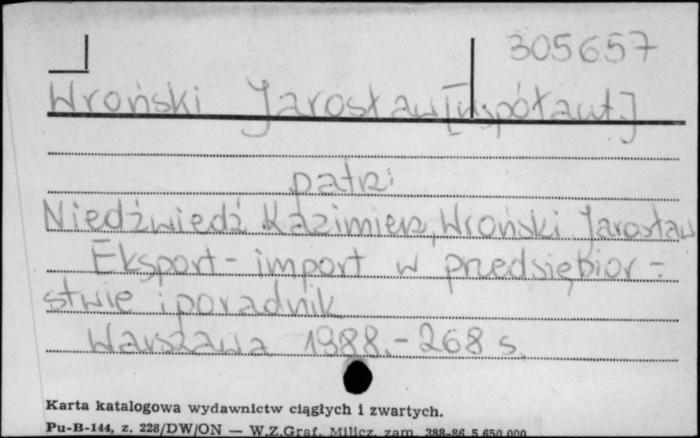 305657
Wroński Jarosław [współaut.]
patrz:
Niedźwiedź Kazimierz, Wroński Jarosław
Eksport-import w przedsiębior-
stwie : poradnik
Warszawa 1988.-268 s.
Karta katalogowa wydawnictw ciągłych i zwartych.
Pu-B-144, z. 228/DW/ON — W.Z.Graf. Milicz, zam. 388-86 5.650.000